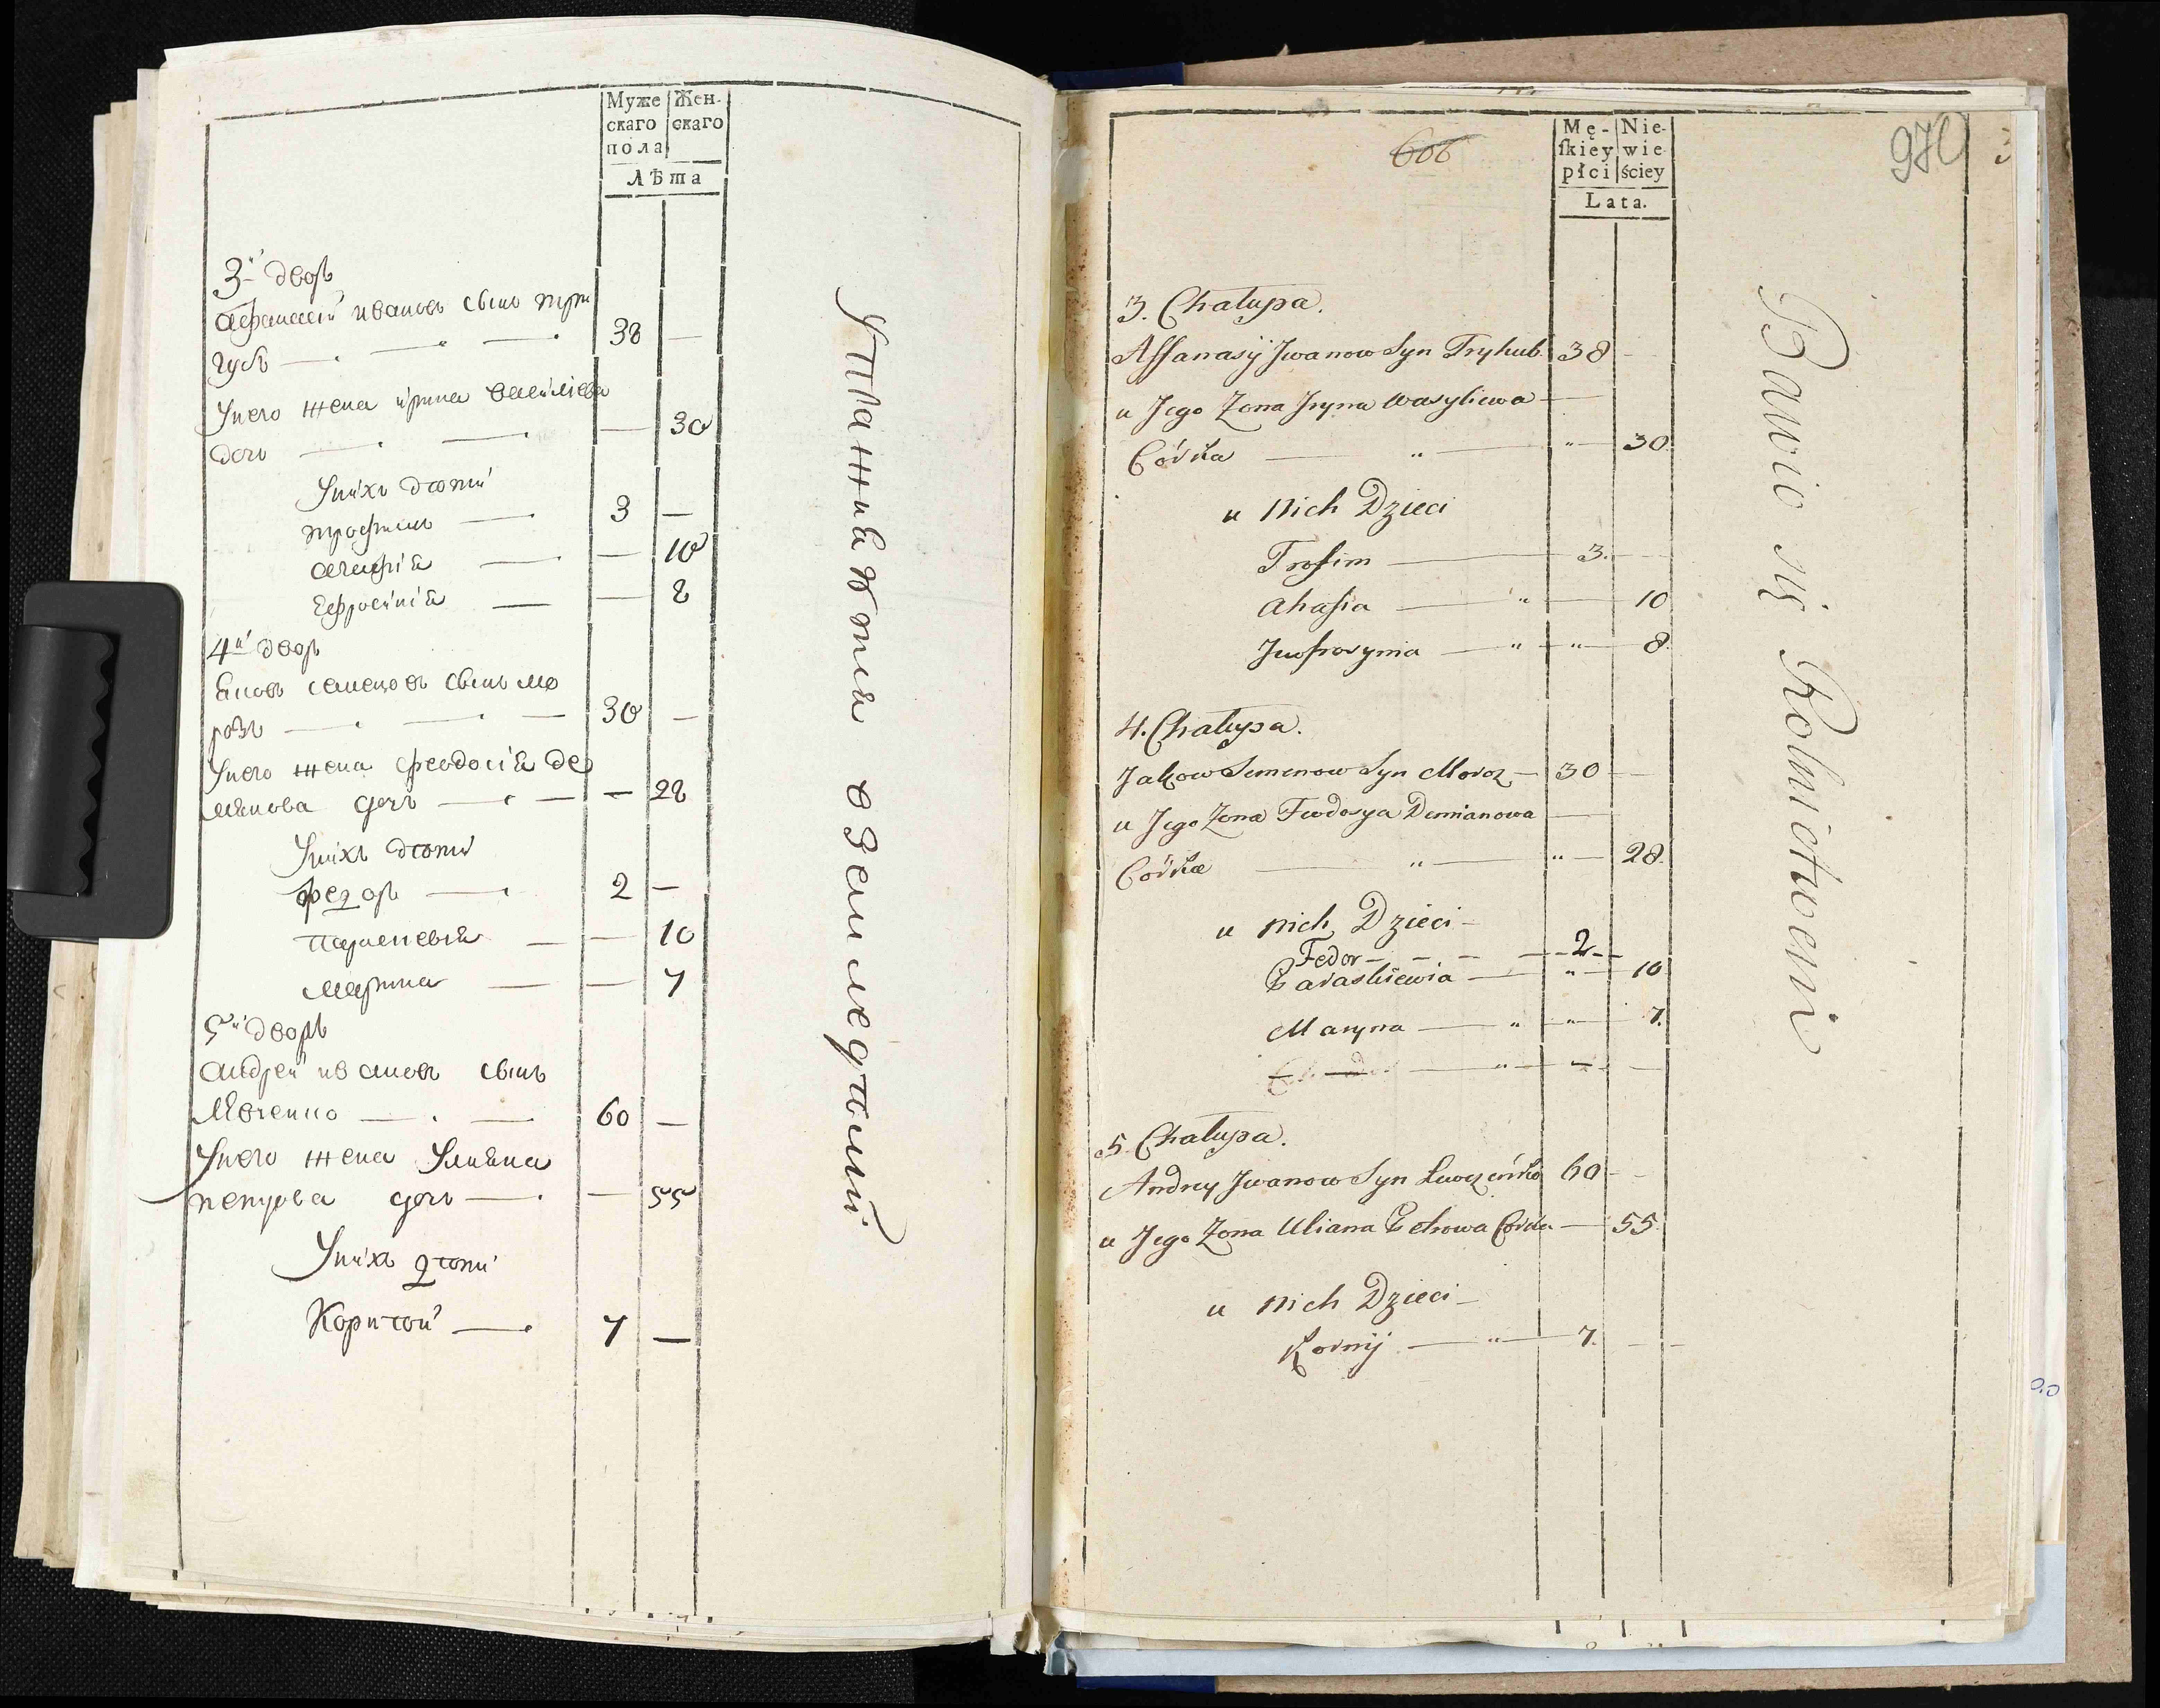 Муже
скаго
пола
Жен-
скаго
Лѣта
3й дворъ
Афанасей ивановъ сынъ три
губъ — — — 38 —
Унего жена ирина василіева
дочь — — — 30
Унихъ дѣти
трофимъ — 3 —
агафія — — 10
Ефросинія — — 8
4й дворъ
Яковъ семеновъ сынъ мо
розъ — — — 30 —
Унего жена феодосія де
мянова дочь — — — 28
Унихъ дѣти
федоръ — 2 —
парасковья — — 10
марина — — 7
5й дворъ
андрей ивановъ сынъ
Левченко — — 60 —
Унего жена Уляна
петрова дочь — — 55
Унихъ дѣти
Корнѣй — 7 —
Упражняются в земледѣлии
606
Mę-
ſkiey
płci
Nie-
wie
ściey
Lata.
3. Chałupa.
Affanasÿ Jwanow Syn Tryhub. 38 —
u Jego Zona Jryna Wasyliewa —
Córka — " — " — 30.
u nich Dzieci
Trofim — 3. —
Ahafia — " — 10
Jwfrosynia — " — " — 8.
4. Chałupa.
Jakow Semenow Syn Moroz — 30 —
u Jego Zona Feodosya Demianowa —
Córka — " — " — 28.
u nich Dzieci —
Fedor — — — 2 —
Paraskiewia — " — 10
Maryna — " — " — 7.
5. Chałupa.
Andrey Jwanow Syn Lewczeńko 60 —
u Jego Zona Uliana Petrowa Córka — 55.
u nich Dzieci —
Kornij — " — 7. — —
Bawio się Rolnictwem